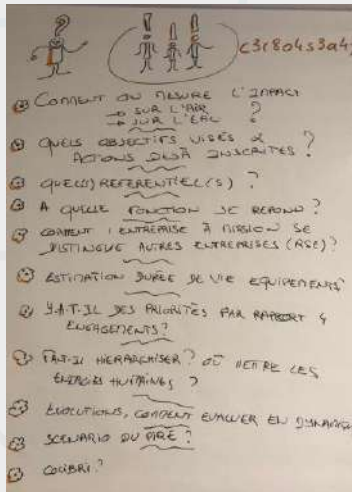 ?
! ! !
c3r804s3a4s
COMMENT ON MESURE L'IMPACT
→ SUR L'AIR ?
→ SUR L'EAU ?
QUELS OBJECTIFS VISÉS &
ACTIONS DEJÀ INSCRITES ?
QUEL(S) REFERENTIEL(S) ?
A QUELLE FONCTION JE REPOND ?
COMMENT L'ENTREPRISE À MISSION SE
DISTINGUE AUTRES ENTREPRISES (RSE) ?
ESTIMATION DURÉE DE VIE EQUIPEMENTS
Y.A.T-IL DES PRIORITÉS PAR RAPPORT 4
ENGAGEMENTS ?
FAUT-IL HIERARCHISER ? OÙ METTRE LES
ENERGIES HUMAINES ?
EVOLUTIONS, COMMENT EVALUER EN DYNAMIQUE
SCENARIO DU PIRE ?
COLIBRI ?